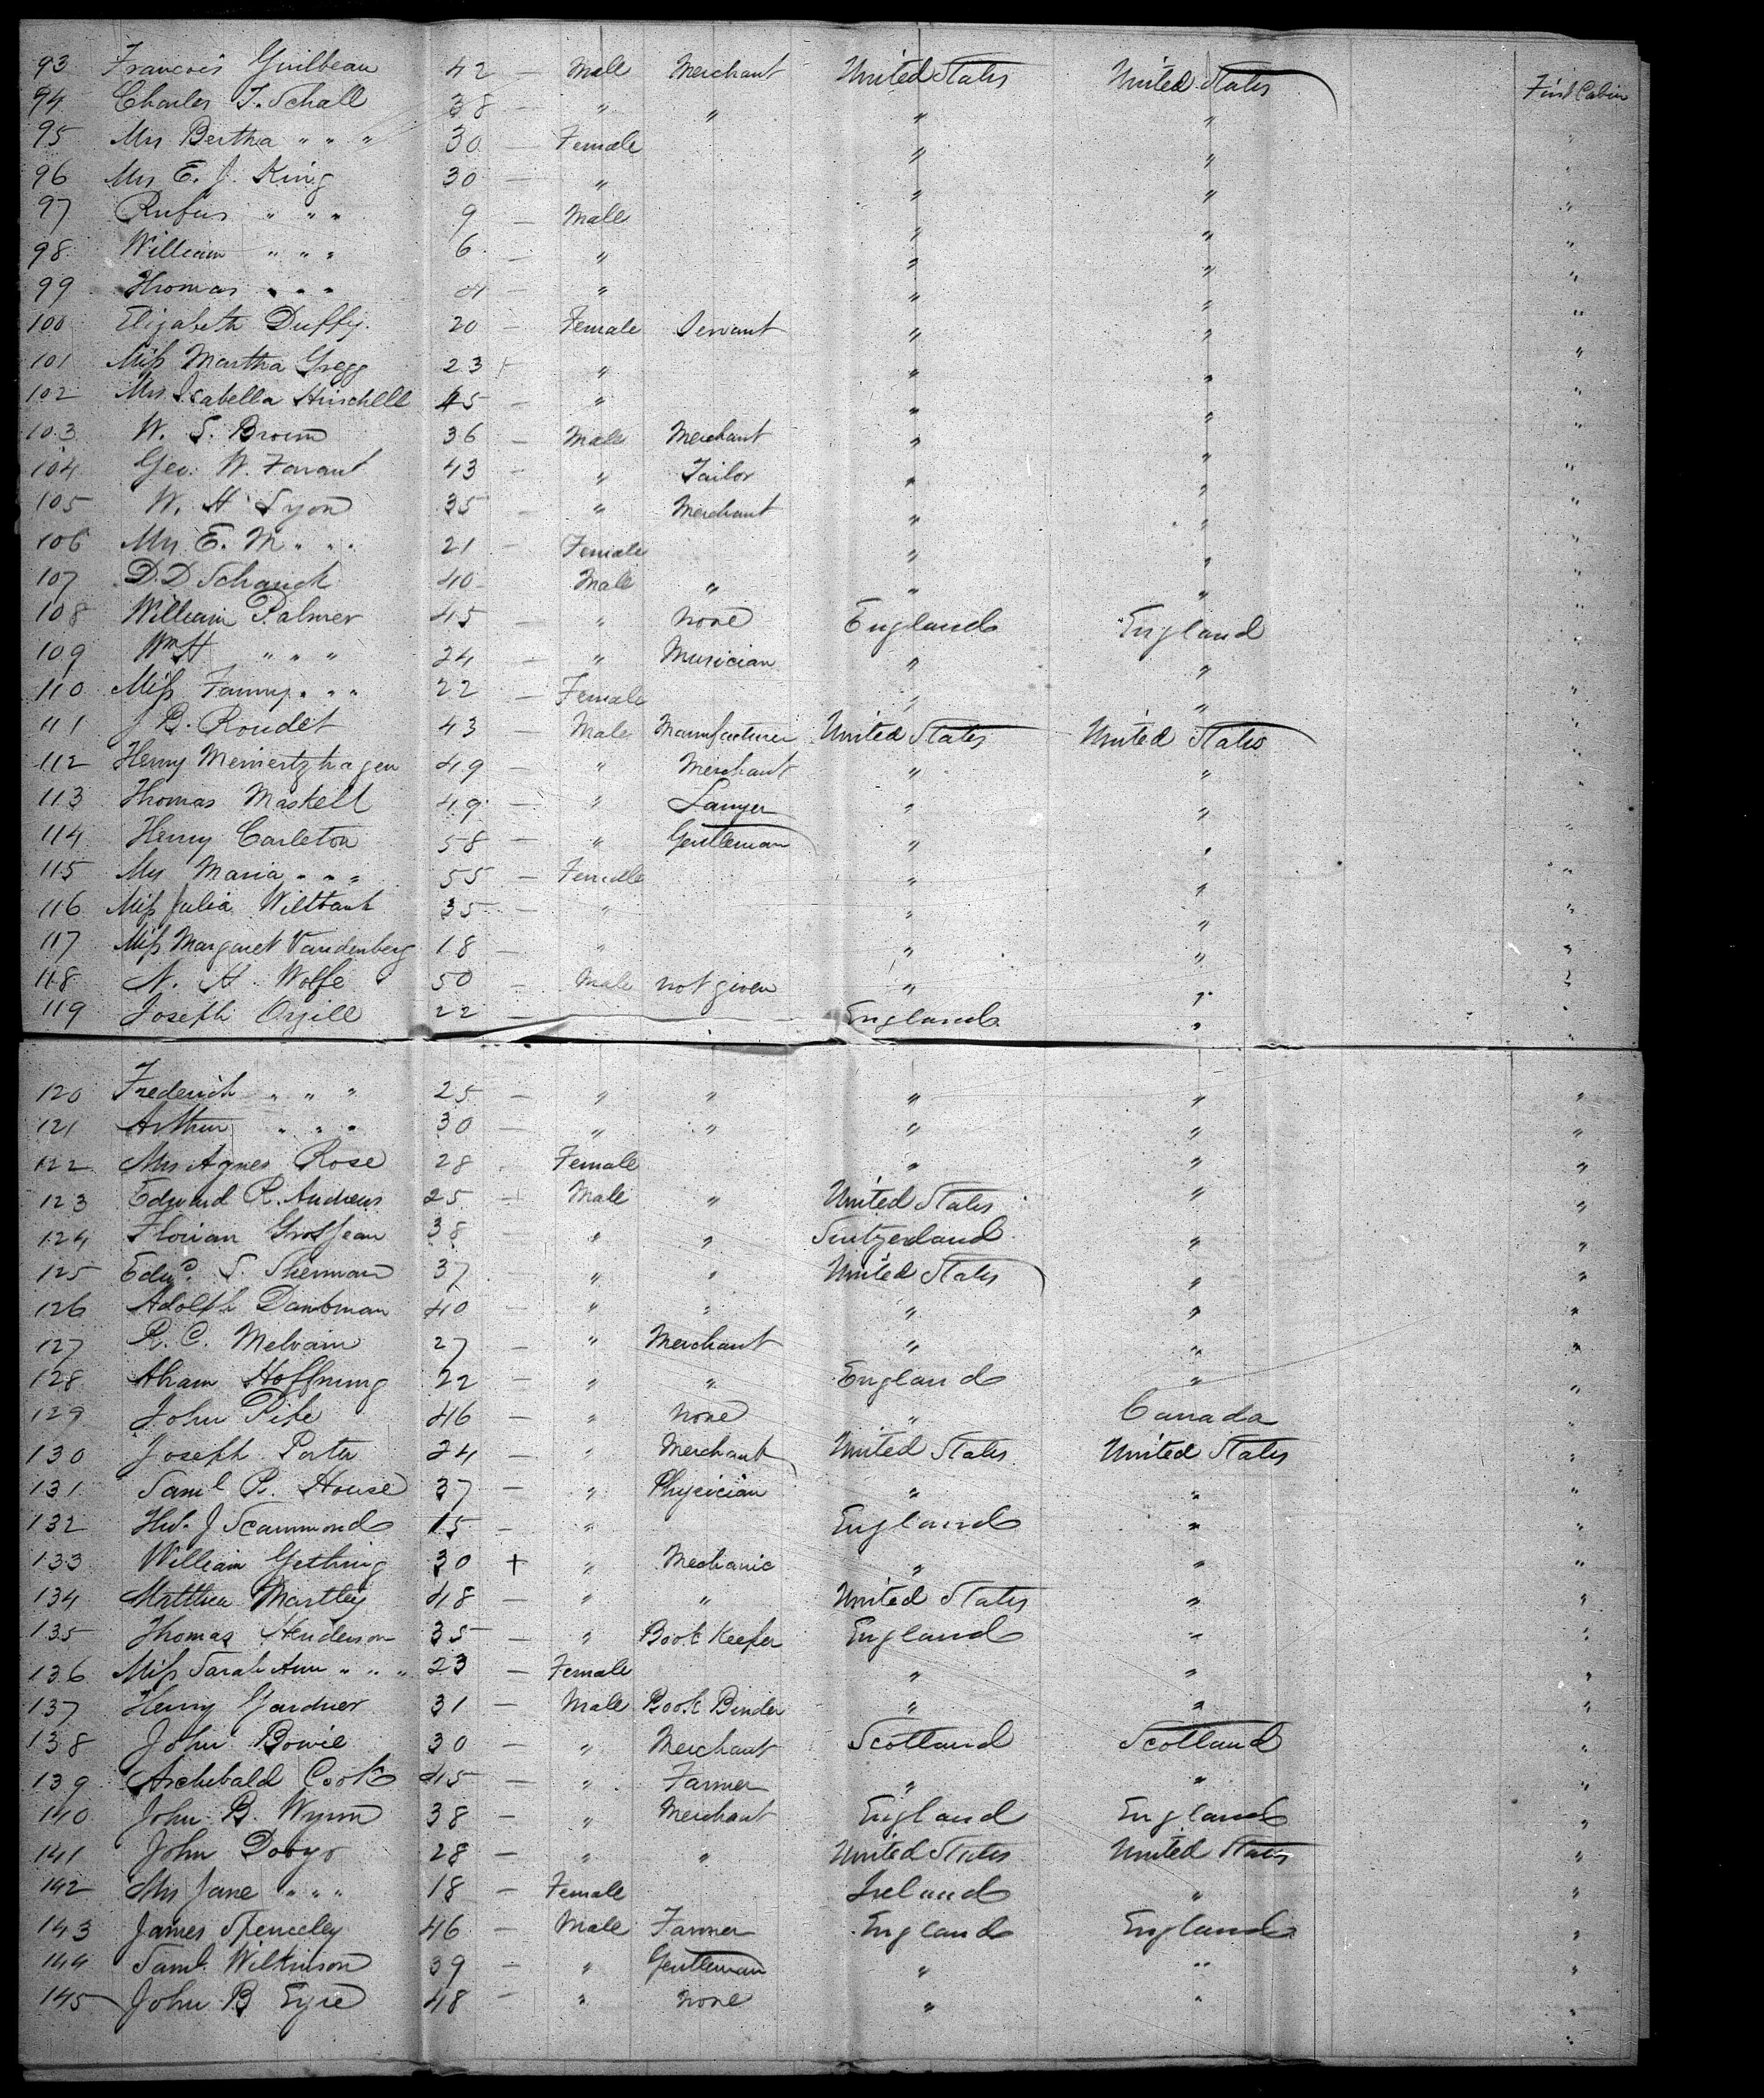 93 Francois Guilbeau 42 — Male Merchant United States United States First Cabin
94 Charles T. Schall 38 — " " " " "
95 Mrs Bertha " " " 30 — Female " " "
96 Mrs E. J. King 30 — " " " "
97 Rufus " " " 9 — Male " " "
98 William " " " 6 — " " " "
99 Thomas " " " 4 — " " " "
100 Elizabeth Duffy 20 — Female Servant " " "
101 Miss Martha Gregg 23 + " " " "
102 Mrs Isabella Hirschell 45 — " " " "
103 W. S. Brown 36 — Male Merchant " " "
104 Geo. W. Farrant 43 — " Tailor " " "
105 W. H Lyon 35 — " Merchant " " "
106 Mrs E. M " " " 21 — Female " " "
107 D. D Schanck 40 Male " " " "
108 William Palmer 45 — " None England England "
109 Wm H " " " 24 — " Musician " " "
110 Miss Fanny " " " 22 — Female " " "
111 J B. Roudet 43 — Male Manufacturer United States United States "
112 Henry Meinertzhagen 49 — " Merchant " " "
113 Thomas Maskell 49 — " Lawyer " " "
114 Henry Carleton 58 — " Gentleman " " "
115 Mrs Maria " " " 55 — Female " " "
116 Miss Julia Wiltbank 35 — " " " "
117 Miss Margaret Vandenberg 18 — " " " "
118 N. H. Wolfe 50 — Male not given " " "
119 Joseph Orgill 22 — England " "
120 Frederick " " " 25 — " " " " "
121 Arthur " " " 30 — " " " " "
122 Mrs Agnes Rose 28 Female " " "
123 Edward R. Andrews 25 + Male " United States " "
124 Florian Grosjean 38 " " Switzerland " "
125 Edwd. S. Sherman 37 " " United States " "
126 Adolph 40 — " " " " "
127 R. C. Melvain 27 — " Merchant " " "
128 Abram Hoffnung 22 — " " England " "
129 John Pike 46 — " None " Canada "
130 Joseph Porter 24 — " Merchant United States United States "
131 Saml R. House 37 — " Physician " " "
132 J Scammond 15 — " England " "
133 William Gething 30 + " Mechanic " " "
134 Matthew Martley 48 — " " United States " "
135 Thomas Henderson 35 — " Book Keeper England " "
136 Miss Sarah Ann " " " 23 — Female " " "
137 Henry Gardner 31 — Male Book Binder " " "
138 John Bowie 30 — " Merchant Scotland Scotland "
139 Archibald Cook 45 — " Farmer " " "
140 John B. Wynn 38 — " Merchant England England "
141 John Dobys 28 — " " United States United States "
142 Mrs Jane " " " 18 — Female Ireland " "
143 James Spenceley 46 — Male Farmer England England "
144 Saml. Wilkinson 39 — " Gentleman " " "
145 John B Eyre 48 — " None " " "